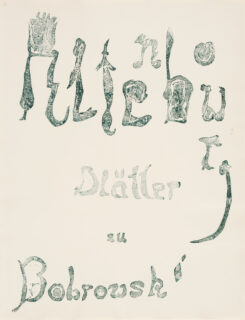 Altenbourg
Blätter
zu
Bobrowski